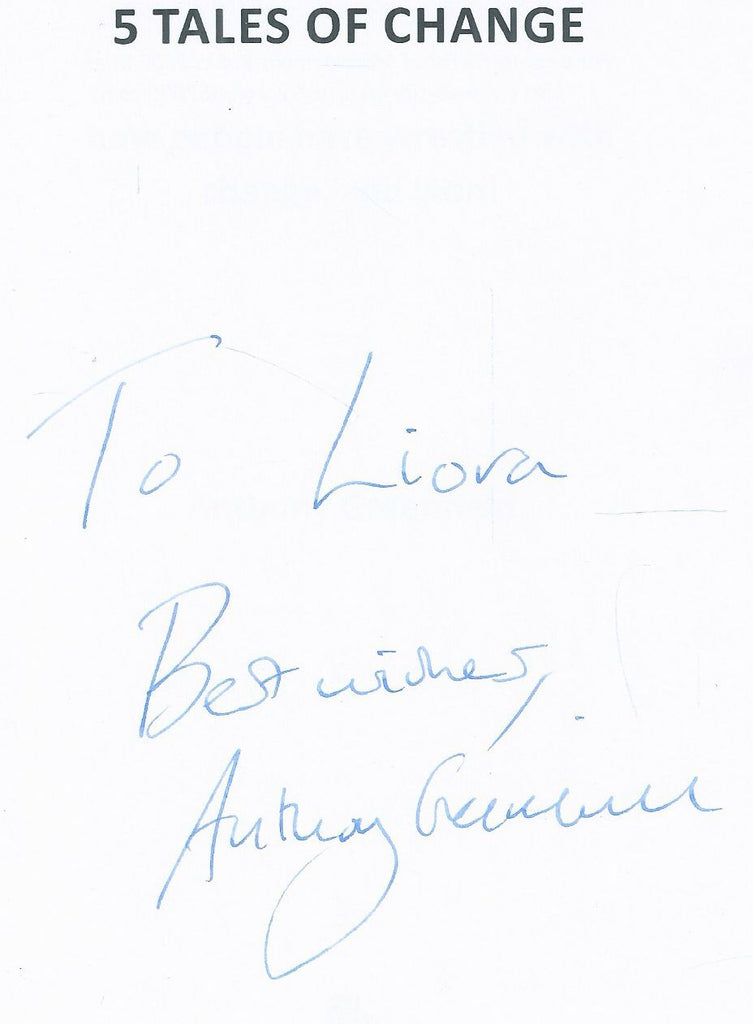 5 TALES OF CHANGE
To Liora
Best wishes,
Anthony